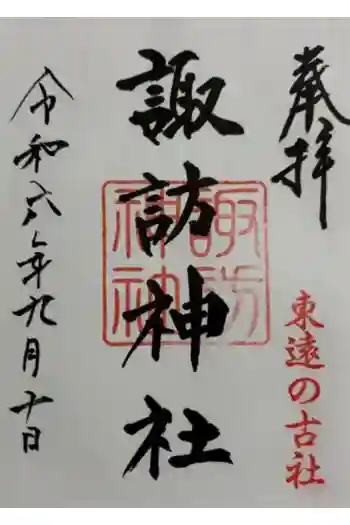 奉拝
東遠の古社
諏訪神社
諏訪神社
令和六年九月十日